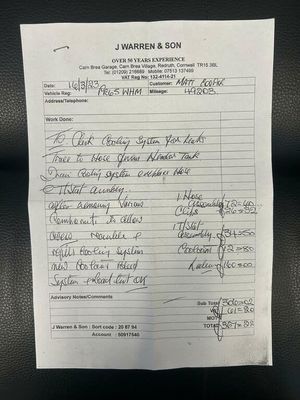 J WARREN & SON
OVER 50 YEARS EXPERIENCE
Carn Brea Garage, Carn Brea Village, Redruth, Cornwall TR15 3BL
Tel: (01209) 218889 Mobile: 07513 137489
VAT Reg No: 132-4114-21
Date: 16/3/23 Customer: MATT
Vehicle Reg: PK65 WHM Mileage:
Address/Telephone:
Work Done:
To Check Cooling System for Leaks
Trace to Hose from Header Tank
Drain Cooling System Hose
& T/Stat assembly
after removing various 1 Hose assembly 72=40
Components to allow Clips
access 1 T/Stat
refill Cooling System assembly 34=50
new Coolant Coolant 12=80
System & Road test ok Labour 160=00
Advisory Notes/Comments
Sub Total 306=02
VAT 61=20
MOT
TOTAL 367=22
J Warren & Son: Sort code: 20 87 94
Account: 50917540